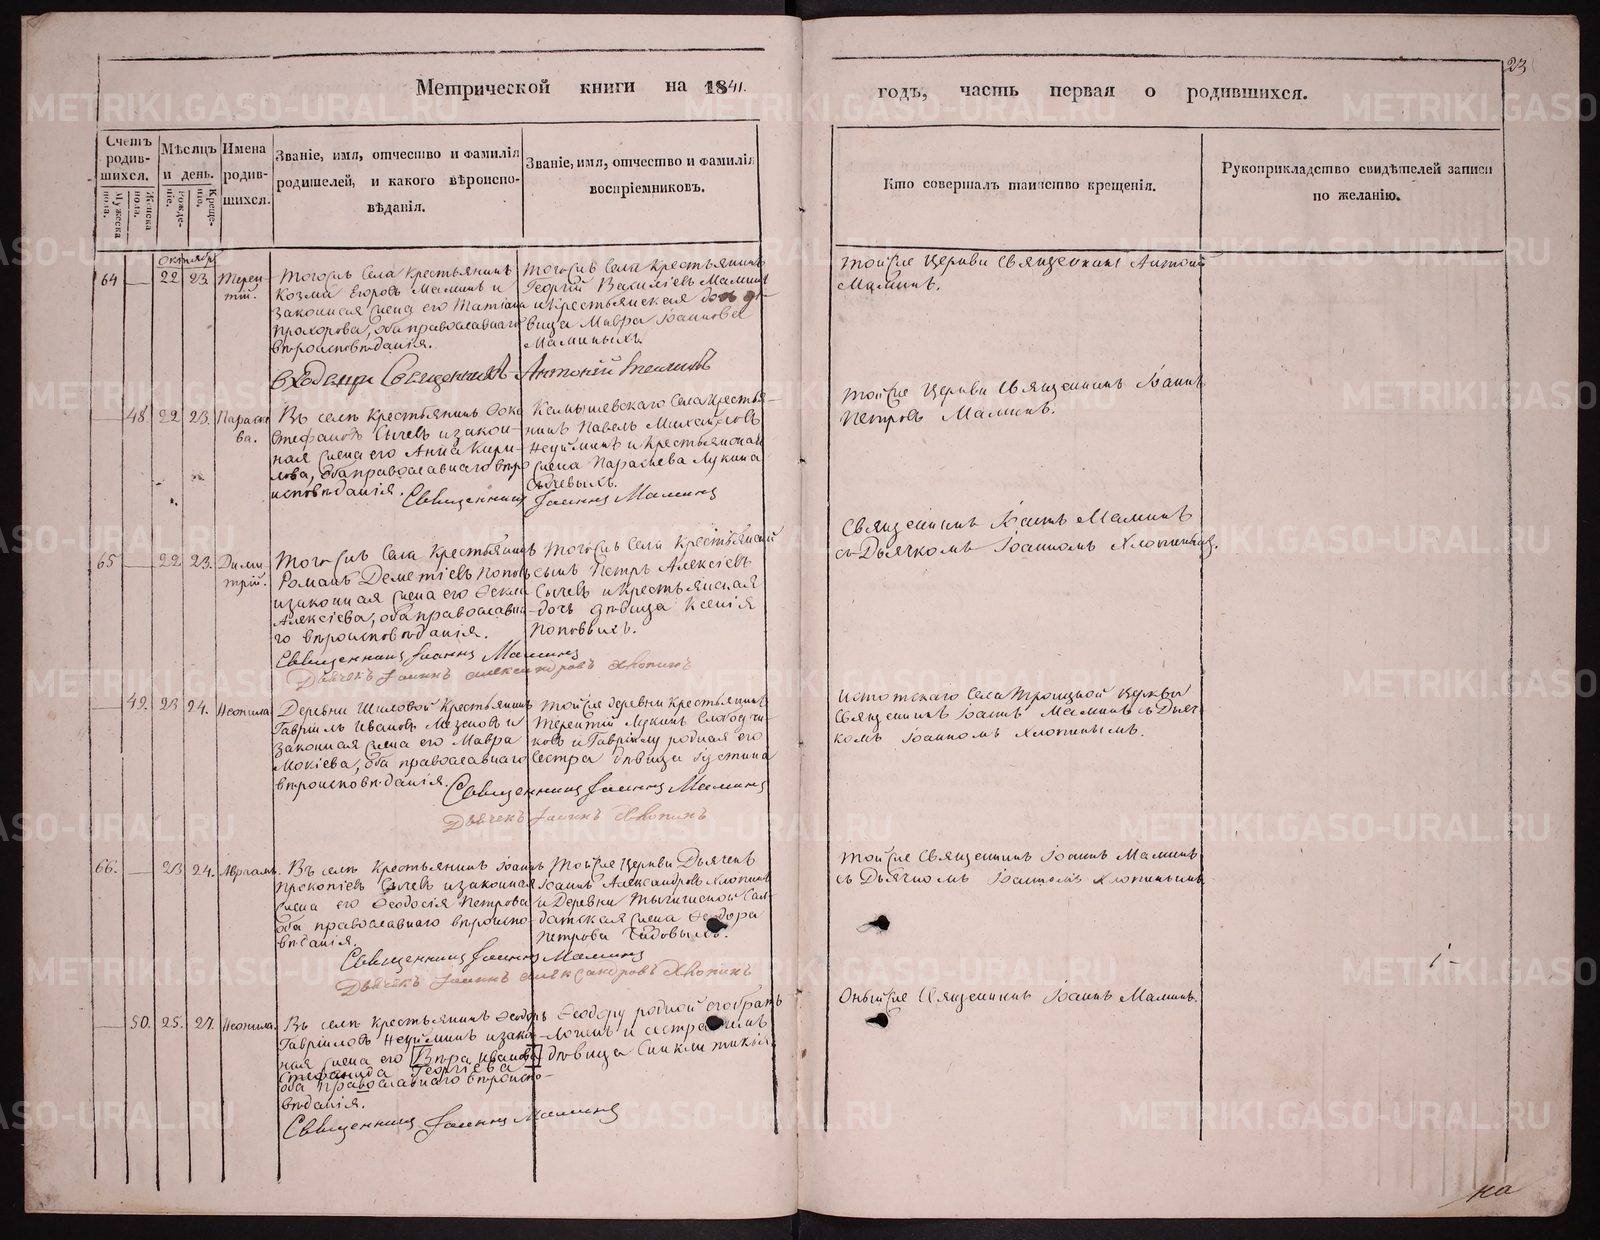 Метрической книги на 1841.
годъ, часть первая о родившихся.
23
Счетъ родившихся.
Мужеска пола.
Женска пола.
Мѣсяцъ и день.
Рождение.
Крещение.
Имена родившихся.
Званіе, имя, отчество и фамилія
родителей, и какого вѣроиспо-
вѣданія.
Званіе, имя, отчество и фамилія
воспріемниковъ.
Кто совершалъ таинство крещенія.
Рукоприкладство свидѣтелей записи
по желанію.
Октябрь
64 — 22 23. Терен-
тій.
Тогожъ Села Крестьянинъ
Козма Егоровъ Маминъ и
законная жена его Татіана
Прохорова, оба православнаго
вѣроисповѣданія.
тогожъ Села Крестьянинъ
Георгій Василіевъ Маминъ
и крестьянская дочь дѣ-
вица Мавра Іоаннова
Маминыхъ.
тойже Церкви Священникъ Антоній
Маминъ.
Священникъ Антоній
— 48 22 23. Параске-
ва.
Въ селѣ Крестьянинъ
Стефановъ Сычевъ и закон-
ная жена его Анна Кири-
лова, оба православнаго вѣро
исповѣданія.
Камышевскаго Села Крестья-
нинъ Павелъ Михайловъ
Неуйминъ и крестьянская
жена Параскева Лукина
Сычевыхъ.
Священникъ Іоаннъ Маминъ
тойже Церкви Священникъ Іоаннъ
Петровъ Маминъ.
65 — 22 23. Дими-
трій.
Тогожъ Села Крестьянинъ
Романъ Деметіевъ Поповъ
и законная жена его Фекла
Алексіева, оба православна-
го вѣроисповѣданія.
тогожъ Села Крестьянскій
сынъ Петръ Алексіевъ
Сычевъ и крестьянская
дочь дѣвица Ксенія
Поповыхъ.
Священникъ Іоаннъ Маминъ
Дьячекъ Іоаннъ Александровъ Хлопинъ
Священникъ Іоаннъ Маминъ
съ Дьячкомъ Іоанномъ Хлопинымъ.
— 49. 23 24. Неонила
Деревни Шиловой Крестьянинъ
Гавріилъ Ивановъ и
законная жена его Мавра
Мокіева, оба православнаго
вѣроисповѣданія.
тойже деревни Крестьянинъ
Терентій Лукинъ Слободчи-
ковъ и Гавріилу родная его
сестра дѣвица Іустина
Священникъ Іоаннъ Маминъ
Дьячекъ Іоаннъ Хлопинъ
Истокскаго Села Троицкой Церкви
Священникъ Іоаннъ Маминъ съ Дьяч-
комъ Іоанномъ Хлопинымъ.
66. — 23 24. Авраамъ.
Въ селѣ Крестьянинъ Іоаннъ
Прокопіевъ Сычевъ и законная
жена его Феодосія Петрова
оба православнаго вѣроиспо-
вѣданія.
тойже Церкви Дьячекъ
Іоаннъ Александровъ Хлопинъ
и Деревни Сол-
датская жена Феодора
Петрова
Священникъ Іоаннъ Маминъ
Дьячекъ Іоаннъ Александровъ Хлопинъ
тойже Священникъ Іоаннъ Маминъ
съ Дьячкомъ Іоанномъ Хлопинымъ
— 50. 25. 27. Неонила.
Въ селѣ Крестьянинъ Феодоръ
Гавріиловъ Неуйминъ и закон-
ная жена его Вѣра Иванова
Стефанида Георгіева
оба православнаго вѣроиспо-
вѣданія.
Феодору родной его братъ
Логинъ и сестра
дѣвица Синклитикія
Священникъ Іоаннъ Маминъ
Оныйже Священникъ Іоаннъ Маминъ.
на
METRIKI.GASO-URAL.RU